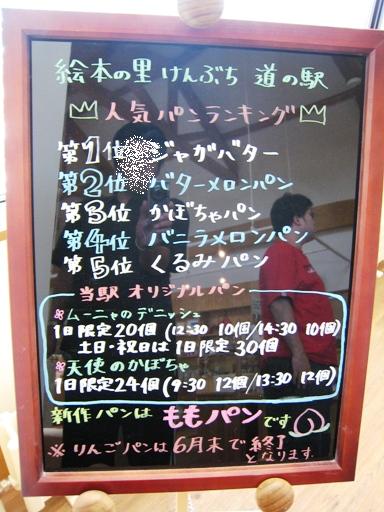 絵本の里けんぶち 道の駅
人気パンランキング
第1位 ジャガバター
第2位 バターメロンパン
第3位 かぼちゃパン
第4位 バニラメロンパン
第5位 くるみパン
当駅 オリジナルパン
ムーニャのデニッシュ
1日限定20個 (12:30 10個/14:30 10個)
土日・祝日は1日限定30個
天使のかぼちゃ
1日限定24個 (9:30 12個/13:30 12個)
新作パンは ももパン です
※りんごパンは6月末で終了
となります。